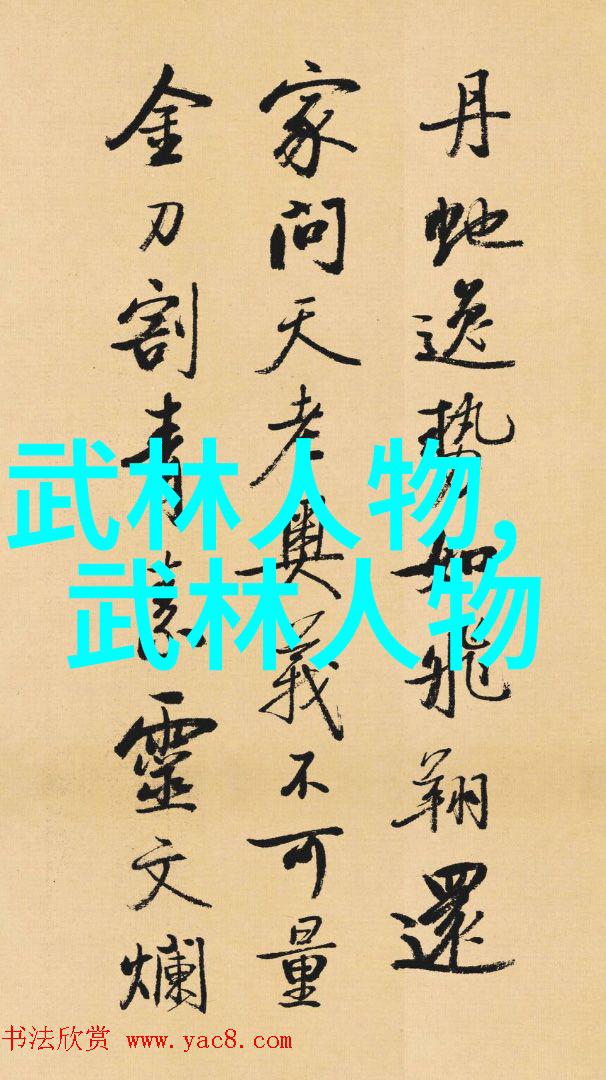 丹虵逸勢如飛翔還
家問天老奧義不可量
金刀割青素靈文爛
武林人物,
武林人物
书法欣赏 www.yac8.com